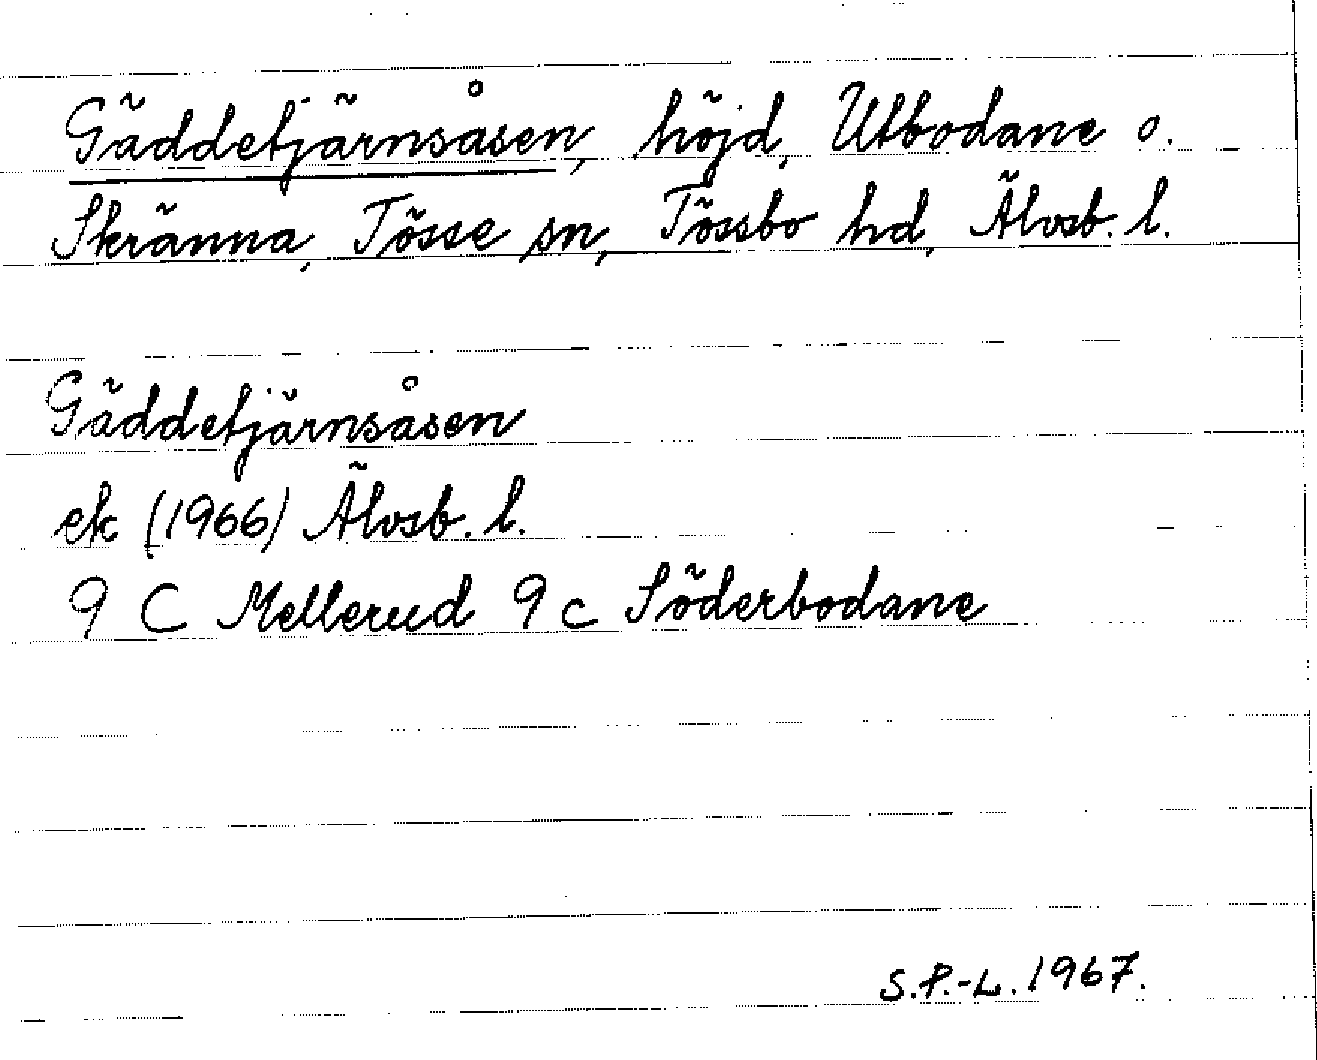 Gäddetjärnsåsen, höjd, Utbodane o.
Skränna, Tösse sn, Tössbo hd, Älvsb. l.
Gäddetjärnsåsen
ek (1966) Älvsb. l.
9 C Mellerud 9 c Söderbodane
S.P.-L. 1967.